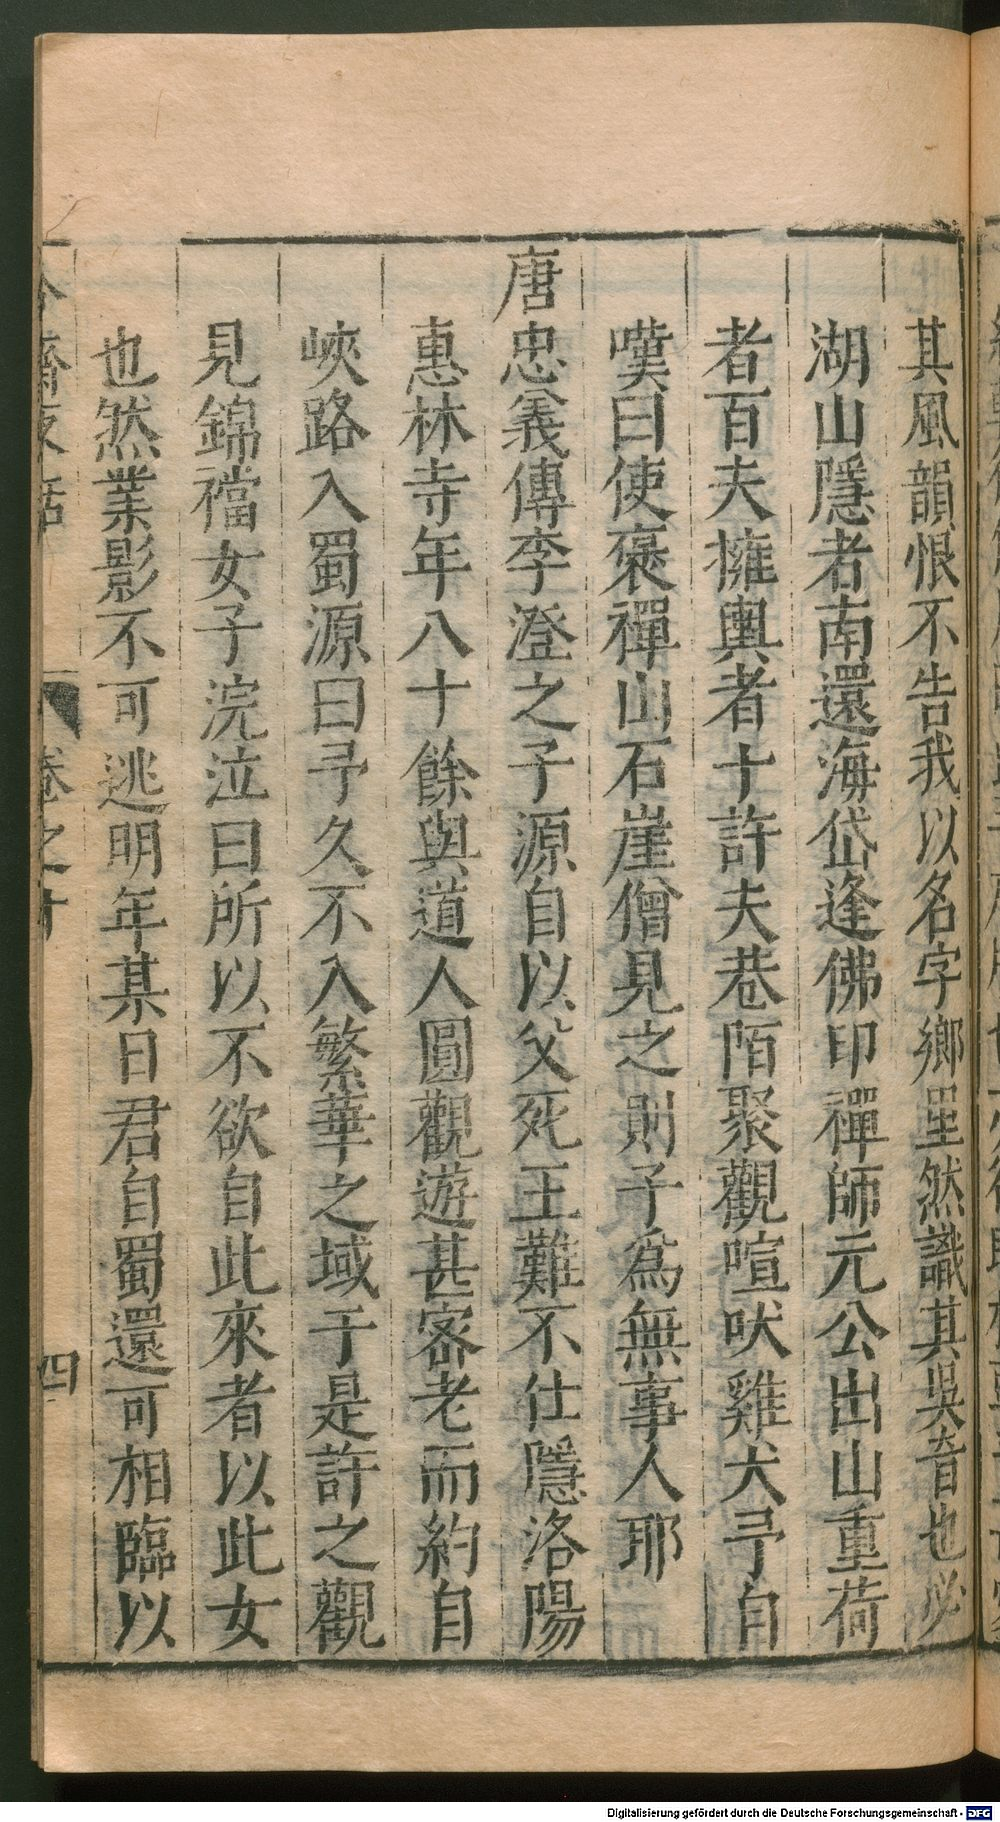 其風韻恨不告我以名字鄉里然識其吳音也必
湖山隱者南還海岱逢佛印禪師元公出山重荷
者百夫擁輿者十許夫巷陌聚觀喧吠雞犬予自
嘆曰使褒禪山石崖僧見之則子為無事人耶
唐忠義傳李澄之子源自以父死王難不仕隱洛陽
惠林寺年八十餘與道人圓觀遊甚密老而約自
峽路入蜀源曰予久不入繁華之域于是許之觀
見錦襠女子浣泣曰所以不欲自此來者以此女
也然業影不可逃明年某日君自蜀還可相臨以
冷齋夜話 卷之十 四
Digitalisierung gefördert durch die Deutsche Forschungsgemeinschaft - DFG